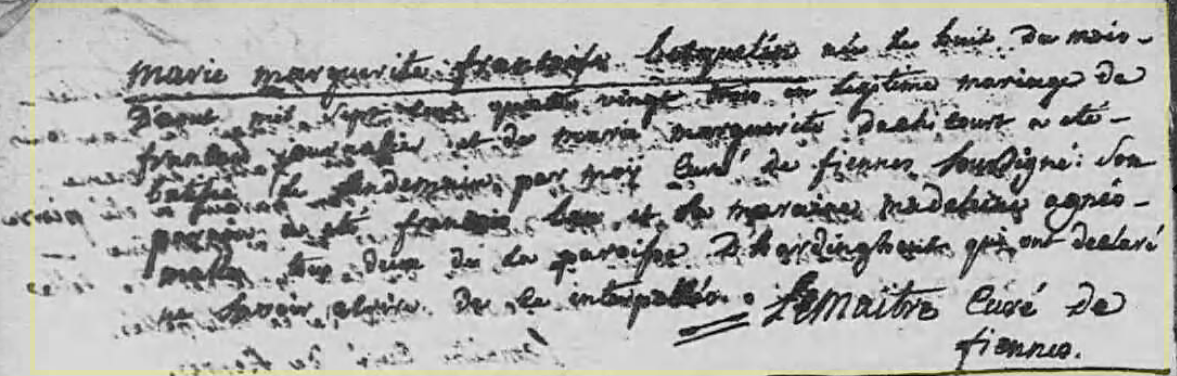 marie marguerite francoise née le huit du mois
d'aout mil sept cent quatre vingt trois en legitime mariage de
francois journalier et de marie marguerite a eté
batisé le lendemain par moy Curé de fiennes soussigné: son
parain a eté francois et la maraine madeleine agnés
tous deux de la paroisse d'hardinghent qui ont declaré
ne savoir ecrire de ce interpellés. Lemaitre Curé de
fiennes.